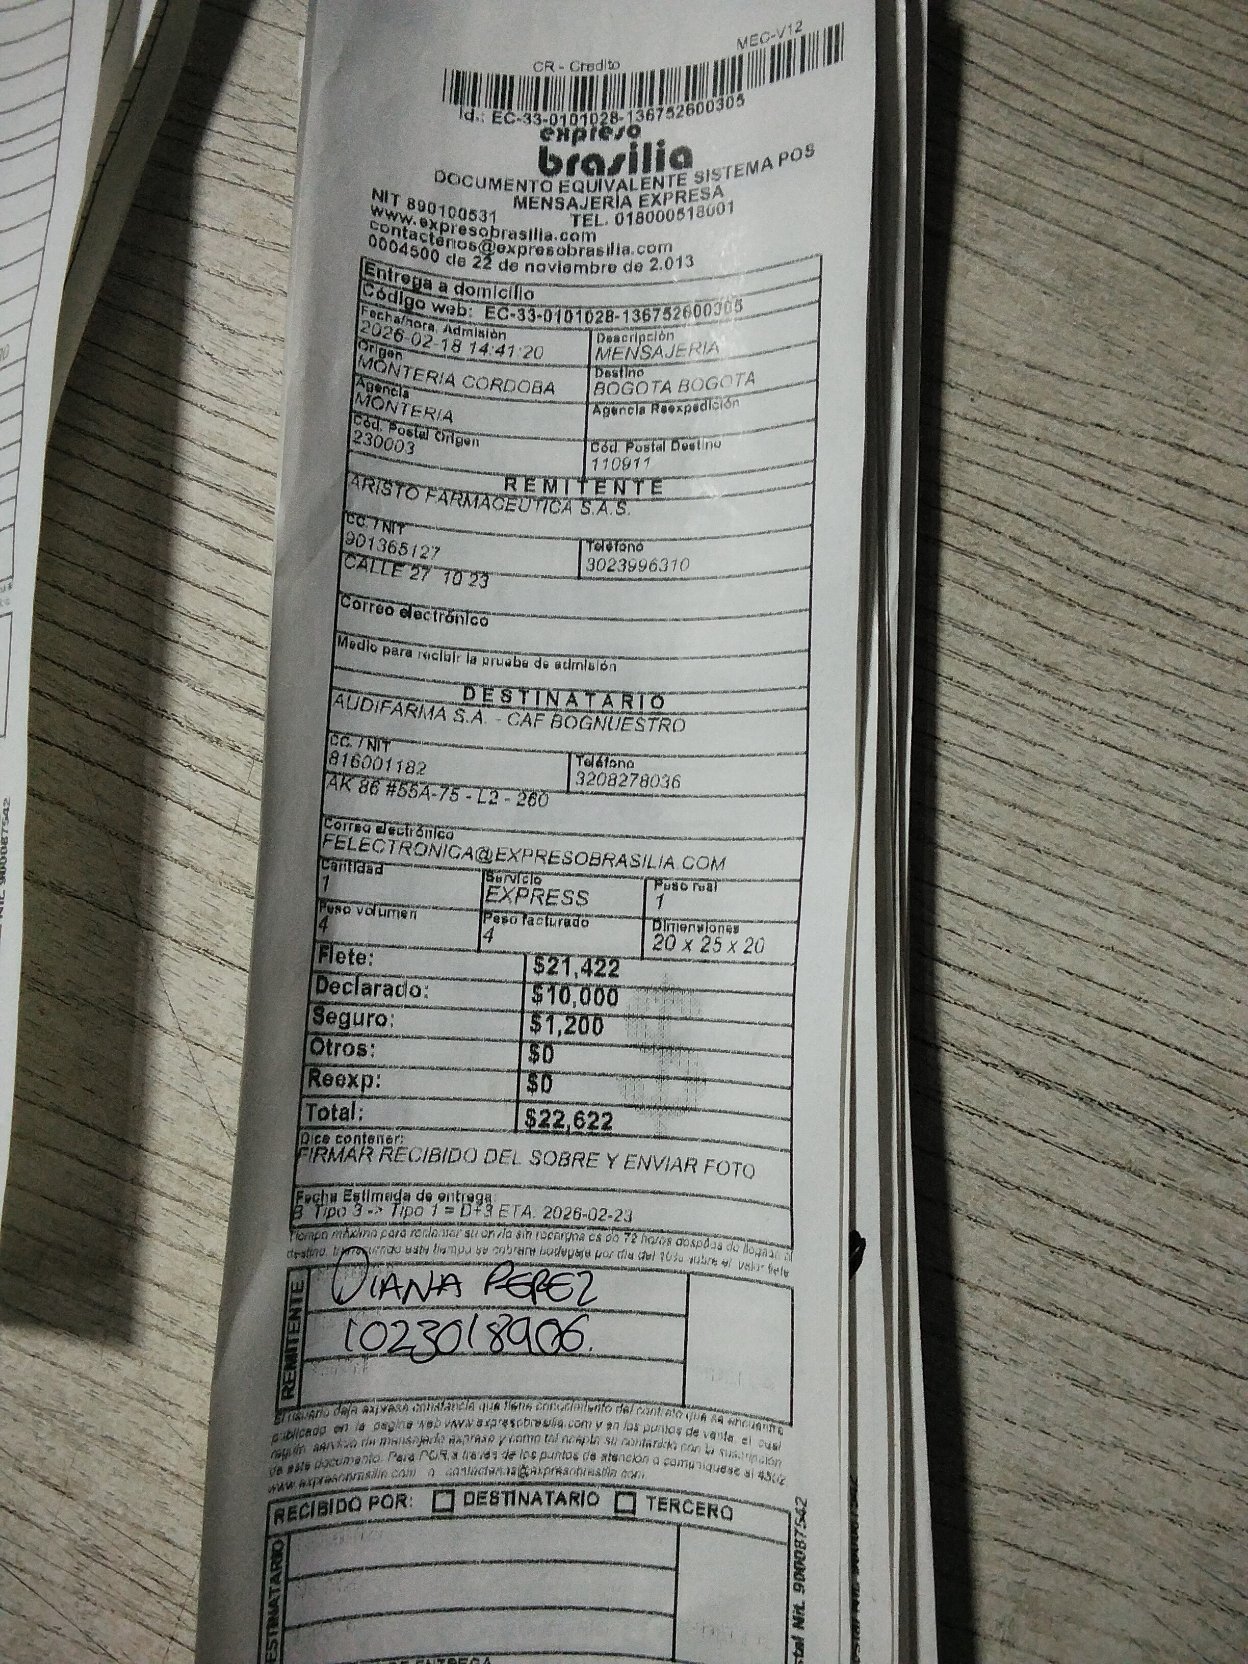 MEC-V12
CR - Credito
Id.: EC-33-0101028-136752600305
expreso
brasilia
DOCUMENTO EQUIVALENTE SISTEMA POS
MENSAJERÍA EXPRESA
NIT 890100531 TEL. 018000518001
www.expresobrasilia.com
contactenos@expresobrasilia.com
0004500 de 22 de noviembre de 2.013
Entrega a domicilio
Código web: EC-33-0101028-136752600305
Fecha/hora. Admisión Descripción
2026-02-18 14:41:20 MENSAJERIA
Origen Destino
MONTERIA CORDOBA BOGOTA BOGOTA
Agencia Agencia Reexpedición
MONTERIA
Cód. Postal Origen Cód. Postal Destino
230003 110911
REMITENTE
ARISTO FARMACEUTICA S.A.S.
CC. / NIT Teléfono
901365127 3023996310
CALLE 27 10 23
Correo electrónico
Medio para recibir la prueba de admisión
DESTINATARIO
AUDIFARMA S.A. - CAF BOGNUESTRO
CC. / NIT Teléfono
816001182 3208278036
AK 86 #55A-75 - L2 - 260
Correo electrónico
FELECTRONICA@EXPRESOBRASILIA.COM
Cantidad Servicio Peso real
1 EXPRESS 1
Peso volumen Peso facturado Dimensiones
4 4 20 x 25 x 20
Flete: $21,422
Declarado: $10,000
Seguro: $1,200
Otros: $0
Reexp: $0
Total: $22,622
Dice contener:
FIRMAR RECIBIDO DEL SOBRE Y ENVIAR FOTO
Fecha Estimada de entrega
B Tipo 3 -> Tipo 1 = D+3 ETA. 2026-02-23
Tiempo máximo para reclamar su envío sin recargos es de 72 horas después de llegado al
destino, transcurrido este tiempo se cobrará bodegaje por día del 10% sobre el valor flete
REMITENTE
DIANA PEREZ
1023018906.
El usuario deja expresa constancia que tiene conocimiento del contrato que se encuentra
publicado en la pagina web www.expresobrasilia.com y en los puntos de venta, el cual
regula servicio de mensajería expresa y como tal acepta su contenido con la suscripción
de este documento. Para PQR a través de los puntos de atención o comuníquese al
www.expresobrasilia.com o contactenos@expresobrasilia.com
RECIBIDO POR: DESTINATARIO TERCERO
DESTINATARIO
Nit. 900087542